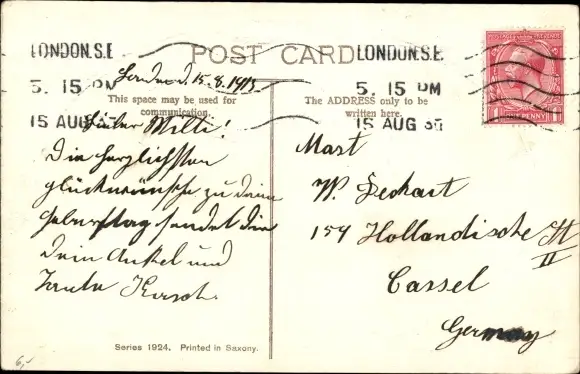 LONDON.S.E
5. 15 PM
15 AUG
POST CARD
LONDON.S.E.
5. 15 PM
15 AUG
ONE PENNY
London d. 15.8.1913
This space may be used for
communication.
The ADDRESS only to be
written here.
Lieber Willi!
Die herzlichsten
glückwünsche zu dein
Geburtstag sendet dir
Dein Onkel und
Tante
W.
154 Holländische St
II
Cassel
Germany
Series 1924. Printed in Saxony.
6,-